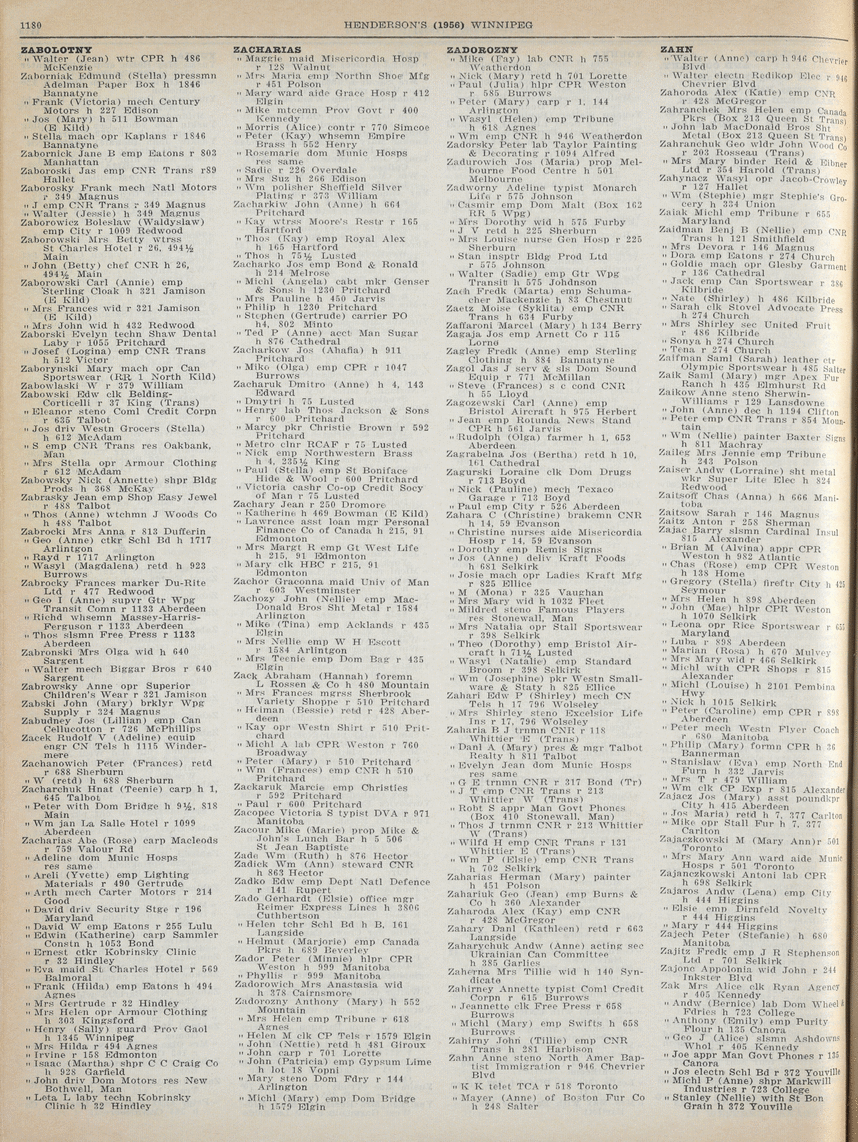 1180
HENDERSON'S (1956) WINNIPEG
ZABOLOTNY
" Walter (Jean) wtr CPR h 486
McKenzie
Zaborniak Edmund (Stella) pressmn
Adelman Paper Box h 1846
Bannatyne
" Frank (Victoria) mech Century
Motors h 227 Edison
" Jos (Mary) h 511 Bowman
(E Kild)
" Stella mach opr Kaplans r 1846
Bannatyne
Zabornick Jane B emp Eatons r 803
Manhattan
Zaboroski Jas emp CNR Trans r89
Hallet
Zaborosky Frank mech Natl Motors
r 349 Magnus
" J emp CNR Trans r 349 Magnus
" Walter (Jessie) h 349 Magnus
Zaborowicz Boleslaw (Waldyslaw)
emp City r 1009 Redwood
Zaborowski Mrs Betty wtrss
St Charles Hotel r 26, 494½
Main
" John (Betty) chef CNR h 26,
494½ Main
Zaborowski Carl (Annie) emp
Sterling Cloak h 321 Jamison
(E Kild)
" Mrs Frances wid r 321 Jamison
(E Kild)
" Mrs John wid h 432 Redwood
Zaborski Evelyn techn Shaw Dental
Laby r 1055 Pritchard
" Josef (Logina) emp CNR Trans
h 512 Victor
Zaborynski Mary mach opr Can
Sportswear (RR 1 North Kild)
Zabowlaski W r 379 William
Zabowski Edw clk Belding-
Corticelli r 37 King (Trans)
" Eleanor steno Coml Credit Corpn
r 655 Talbot
" Jos driv Westrn Grocers (Stella)
h 612 McAdam
" S emp CNR Trans res Oakbank,
Man
" Mrs Stella opr Armour Clothing
r 612 McAdam
Zabowsky Nick (Annette) shpr Bldg
Prods h 368 McKay
Zabrasky Jean emp Shop Easy Jewel
r 488 Talbot
" Thos (Anne) wtchmn J Woods Co
h 488 Talbot
Zabrocki Mrs Anna r 813 Dufferin
" Geo (Anne) ctkr Schl Bd h 1717
Arlington
" Rayd r 1717 Arlington
" Wasyl (Magdalena) retd h 923
Burrows
Zabrocky Frances marker Du-Rite
Ltd r 477 Redwood
" Geo I (Anne) supvr Gtr Wpg
Transit Comn r 1133 Aberdeen
" Richd whsemn Massey-Harris-
Ferguson r 1133 Aberdeen
" Thos slsmn Free Press r 1133
Aberdeen
Zabronski Mrs Olga wid h 640
Sargent
" Walter mech Biggar Bros r 640
Sargent
Zabrowsky Anne opr Superior
Children's Wear r 321 Jamison
Zabski John (Mary) brklyr Wpg
Supply r 324 Magnus
Zabudney Jos (Lillian) emp Can
Cellucotton r 726 McPhillips
Zacek Rudolf V (Adeline) equip
engr CN Tels h 1115 Windermere
Zachanowich Peter (Frances) retd
r 688 Sherburn
" W (retd) h 688 Sherburn
Zacharchuk Hnat (Teenie) carp h 1,
645 Talbot
" Peter with Dom Bridge h 9½, 818
Main
" Wm jan La Salle Hotel r 1099
Aberdeen
Zacharias Abe (Rose) carp Macleods
r 759 Valour Rd
" Adeline dom Munic Hosps
res same
" Areli (Yvette) emp Lighting
Materials r 490 Gertrude
" Arth mech Carter Motors r 214
Good
" David driv Security Stge r 196
Maryland
" David W emp Eatons r 255 Lulu
" Edwin (Katherine) carp Sammler
Constn h 1053 Bond
" Ernest ctkr Kobrinsky Clinic
r 32 Hindley
" Eva maid St Charles Hotel r 569
Balmoral
" Frank (Hilda) emp Eatons h 494
Agnes
" Mrs Gertrude r 32 Hindley
" Mrs Helen opr Armour Clothing
h 303 Kingsford
" Henry (Sally) guard Prov Gaol
h 1345 Winnipeg
" Mrs Hilda r 494 Agnes
" Irvine r 158 Edmonton
" Isaac (Martha) shpr C C Craig Co
h 928 Garfield
" John driv Dom Motors res New
Bothwell, Man
" Leta L laby techn Kobrinsky
Clinic h 32 Hindley
ZACHARIAS
" Maggie maid Misericordia Hosp
r 128 Walnut
" Mrs Maria emp Northn Shoe Mfg
r 451 Polson
" Mary ward aide Grace Hosp r 412
Elgin
" Mike mtcemn Prov Govt r 400
Kennedy
" Morris (Alice) contr r 770 Simcoe
" Peter (Kay) whsemn Empire
Brass h 552 Henry
" Rosemarie dom Munic Hosps
res same
" Sadie r 226 Overdale
" Mrs Suz h 266 Edison
" Wm polisher Sheffield Silver
Plating r 373 William
Zacharkiw John (Anne) h 664
Pritchard
" Kay wtrss Moore's Restr r 165
Hartford
" Thos (Kay) emp Royal Alex
h 165 Hartford
" Thos h 75½ Lusted
Zacharko Jos emp Bond & Ronald
h 214 Melrose
" Michl (Angela) cabt mkr Genser
& Sons h 1230 Pritchard
" Mrs Pauline h 450 Jarvis
" Philip h 1230 Pritchard
" Stephen (Gertrude) carrier PO
h4, 802 Minto
" Ted P (Anne) acct Man Sugar
h 876 Cathedral
Zacharkow Jos (Ahafia) h 911
Pritchard
" Milko (Olga) emp CPR r 1047
Burrows
Zacharuk Dmitro (Anne) h 4, 143
Edward
" Dmytri h 75 Lusted
" Henry lab Thos Jackson & Sons
r 600 Pritchard
" Marcy pkr Christie Brown r 592
Pritchard
" Metro clnr RCAF r 75 Lusted
" Nick emp Northwestern Brass
h 4, 235½ King
" Paul (Stella) emp St Boniface
Hide & Wool r 600 Pritchard
" Victoria cashr Co-op Credit Socy
of Man r 75 Lusted
Zachary Jean r 250 Dromore
" Katherine h 469 Bowman (E Kild)
" Lawrence asst loan mgr Personal
Finance Co of Canada h 215, 91
Edmonton
" Mrs Margt R emp Gt West Life
h 215, 91 Edmonton
" Mary clk HBC r 215, 91
Edmonton
Zachor Graconna maid Univ of Man
r 603 Westminster
Zachozy John (Nellie) emp Mac-
Donald Bros Sht Metal r 1584
Arlington
" Mike (Tina) emp Acklands r 435
Elgin
" Mrs Nellie emp W H Escott
r 1584 Arlintgon
" Mrs Teenie emp Dom Bag r 435
Elgin
Zack Abraham (Hannah) foremn
L Rossen & Co h 480 Mountain
" Mrs Frances mgrss Sherbrook
Variety Shoppe r 510 Pritchard
" Heiman (Bessie) retd r 428 Aber-
deen
" Kay opr Westn Shirt r 510 Prit-
chard
" Michl A lab CPR Weston r 760
Broadway
" Peter (Mary) r 510 Pritchard
" Wm (Frances) emp CNR h 510
Pritchard
Zackaruk Marcie emp Christies
r 592 Pritchard
" Paul r 600 Pritchard
Zacopec Victoria S typist DVA r 971
Manitoba
Zacour Mike (Marie) prop Mike &
John's Lunch Bar h 5 506
St Jean Baptiste
Zade Wm (Ruth) h 876 Hector
Zadick Wm (Ann) steward CNR
h 863 Hector
Zadko Edw emp Dept Natl Defence
r 141 Rupert
Zado Gerhardt (Elsie) office mgr
Reimer Express Lines h 3806
Cuthbertson
" Helen tchr Schl Bd h B, 161
Langside
" Helmut (Marjorie) emp Canada
Pkrs h 689 Beverley
Zador Peter (Minnie) hlpr CPR
Weston h 999 Manitoba
" Phyllis r 999 Manitoba
Zadorowich Mrs Anastasia wid
h 378 Cathensmore
Zadorozny Anthony (Mary) h 552
Mountain
" Mrs Helen emp Tribune r 618
Agnes
" Helen M clk CP Tels r 1579 Elgin
" John (Nettie) retd h 481 Giroux
" John carp r 701 Lorette
" John (Patricia) emp Gypsum Lime
h lot 18 Vopni
" Mary steno Dom Fdry r 144
Arlington
" Michl (Mary) emp Dom Bridge
h 1579 Elgin
ZADOROZNY
" Mike (Fay) lab CNR h 755
Weatherdon
" Nick (Mary) retd h 701 Lorette
" Paul (Julia) hlpr CPR Weston
r 585 Burrows
" Peter (Mary) carp r 1, 144
Arlington
" Wasyl (Helen) emp Tribune
h 618 Agnes
" Wm emp CNR h 946 Weatherdon
Zadorsky Peter lab Taylor Painting
& Decorating r 1094 Alfred
Zadurowich Jos (Maria) prop Mel-
bourne Food Centre h 501
Melbourne
Zadworny Adeline typist Monarch
Life r 575 Johnson
" Casmir emp Dom Malt (Box 162
RR 5 Wpg)
" Mrs Dorothy wid h 575 Furby
" J V retd h 225 Sherburn
" Mrs Louise nurse Gen Hosp r 225
Sherburn
" Stan insptr Bldg Prod Ltd
r 575 Johnson
" Walter (Sadie) emp Gtr Wpg
Transit h 575 Johdnson
Zaeh Fredk (Marta) emp Schuma-
cher Mackenzie h 83 Chestnut
Zaetz Moise (Syklita) emp CNR
Trans h 634 Furby
Zaffaroni Marcel (Mary) h 134 Berry
Zagaja Jos emp Arnett Co r 115
Lorne
Zagley Fredk (Anne) emp Sterling
Clothing h 884 Bannatyne
Zagol Jas J serv & sls Dom Sound
Equip r 771 McMillan
" Steve (Frances) s c cond CNR
h 55 Lloyd
Zagozewski Carl (Anne) emp
Bristol Aircraft h 975 Herbert
" Jean emp Rotunda News Stand
CPR h 561 Jarvis
" Rudolph (Olga) farmer h 1, 653
Aberdeen
Zagrabelna Jos (Bertha) retd h 10,
161 Cathedral
Zagurski Loraine clk Dom Drugs
r 713 Boyd
" Nick (Pauline) mech Texaco
Garage r 713 Boyd
" Paul emp City r 526 Aberdeen
Zahara C (Christine) brakemn CNR
h 14, 59 Evanson
" Christine nurses aide Misericordia
Hosp r 14, 59 Evanson
" Dorothy emp Remis Signs
" Jos (Anne) deliv Kraft Foods
h 681 Selkirk
" Josie mach opr Ladies Kraft Mfg
r 825 Ellice
" M (Mona) r 325 Vaughan
" Mrs Mary wid h 1032 Fleet
" Mildred steno Famous Players
res Stonewall, Man
" Mrs Natalia opr Stall Sportswear
r 398 Selkirk
" Theo (Dorothy) emp Bristol Air-
craft h 71½ Lusted
" Wasyl (Natalie) emp Standard
Broom r 398 Selkirk
" Wm (Josephine) pkr Westn Small-
ware & Staty h 825 Ellice
Zahari Edw P (Shirley) mech CN
Tels h 17 796 Wolseley
" Mrs Shirley steno Excelsior Life
Ins r 17, 796 Wolseley
Zaharia B J trnmn CNR r 118
Whittier E (Trans)
" Danl A (Mary) pres & mgr Talbot
Realty h 811 Talbot
" Evelyn Jean dom Munic Hosps
res same
" G E trmmn CNR r 317 Bond (Tr)
" J T emp CNR Trans r 213
Whittier W (Trans)
" Robt S appr Man Govt Phones
(Box 410 Stonewall, Man)
" Thos J trnmn CNR r 213 Whittier
W (Trans)
" Wilfd H emp CNR Trans r 131
Whittier E (Trans)
" Wm P (Elsie) emp CNR Trans
h 702 Selkirk
Zaharias Herman (Mary) painter
h 451 Polson
Zahariuk Geo (Jean) emp Burns &
Co h 360 Alexander
Zaharoda Alex (Kay) emp CNR
r 428 McGregor
Zahary Danl (Kathleen) retd r 663
Langside
Zaharychuk Andw (Anne) acting sec
Ukrainian Can Committee
h 385 Garlies
Zaherna Mrs Tillie wid h 140 Syn-
dicate
Zahirney Annette typist Coml Credit
Corpn r 615 Burrows
" Jeannette clk Free Press r 658
Burrows
" Michl (Mary) emp Swifts h 658
Burrows
Zahirny John (Tillie) emp CNR
Trans h 281 Harbison
Zahn Anne steno North Amer Bap-
tist Immigration r 946 Chevrier
Blvd
" K K telet TCA r 518 Toronto
" Mayer (Anne) of Boston Fur Co
h 248 Salter
ZAHN
" Walter (Anne) carp h 946 Chevrier
Blvd
" Walter electn Redikop Elec r 946
Chevrier Blvd
Zahoroda Alex (Katie) emp CNR
r 428 McGregor
Zahranchek Mrs Helen emp Canada
Pkrs (Box 213 Queen St Trans)
" John lab MacDonald Bros Sht
Metal (Box 213 Queen St Trans)
Zahranchuk Geo wldr John Wood Co
r 203 Rosseau (Trans)
" Mrs Mary binder Reid & Eibner
Ltd r 354 Harold (Trans)
Zahynacz Wasyl opr Jacob-Crowley
r 127 Hallet
" Wm (Stephie) mgr Stephie's Gro-
cery h 334 Union
Zaiak Michl emp Tribune r 655
Maryland
Zaidman Benj B (Nellie) emp CNR
Trans h 121 Smithfield
" Mrs Devora r 146 Magnus
" Dora emp Eatons r 274 Church
" Goldie mach opr Glesby Garment
r 136 Cathedral
" Jack emp Can Sportswear r 386
Kilbride
" Nate (Shirley) h 486 Kilbride
" Sarah clk Stovel Advocate Press
h 274 Church
" Mrs Shirley sec United Fruit
r 486 Kilbride
" Sonya h 274 Church
" Tena r 274 Church
Zaifman Saml (Sarah) leather ctr
Olympic Sportswear h 485 Salter
Zaik Saml (Mary) mgr Apex Fur
Ranch h 435 Elmhurst Rd
Zaikow Anne steno Sherwin-
Williams r 129 Lansdowne
" John (Anne) dec h 1194 Clifton
" Peter emp CNR Trans r 854 Moun-
tain
" Wm (Nellie) painter Baxter Signs
h 811 Machray
Zaileg Mrs Jennie emp Tribune
h 243 Polson
Zaiser Andw (Lorraine) sht metal
wkr Super Lite Elec h 824
Redwood
Zaitsoff Chas (Anna) h 666 Mani-
toba
Zaitsow Sarah r 146 Magnus
Zaitz Anton r 258 Sherman
Zajac Barry slsmn Cardinal Insul
815 Alexander
" Brian M (Alvina) appr CPR
Weston h 982 Atlantic
" Chas (Rose) emp CPR Weston
h 138 Home
" Gregory (Stella) fireftr City h 425
Seymour
" Mrs Helen h 898 Aberdeen
" John (Mae) hlpr CPR Weston
h 1070 Selkirk
" Leona opr Rice Sportswear r 655
Maryland
" Luba r 898 Aberdeen
" Marian (Rosa) h 670 Mulvey
" Mrs Mary wid r 466 Selkirk
" Michl with CPR Shops r 815
Alexander
" Michl (Louise) h 2101 Pembina
Hwy
" Nick h 1015 Selkirk
" Peter (Caroline) emp CPR r 898
Aberdeen
" Peter mech Westn Flyer Coach
r 680 Manitoba
" Philip (Mary) formn CPR h 36
Bannerman
" Stanislaw (Eva) emp North End
Furn h 332 Jarvis
" Mrs T r 479 William
" Wm clk CP Exp r 815 Alexander
Zajacz Jos (Mary) asst poundkpr
City h 415 Aberdeen
" Jos Maria) retd h 7, 377 Carlton
" Mike opr Stall Fur h 7, 377
Carlton
Zajaczkowski M (Mary Ann)r 501
Toronto
" Mrs Mary Ann ward aide Munic
Hosps r 501 Toronto
Zajanczkowski Antoni lab CPR
h 698 Selkirk
Zajaros Andw (Lena) emp City
h 444 Higgins
" Elsie emp Dirnfeld Novelty
r 444 Higgins
" Mary r 444 Higgins
Zajech Peter (Stefanie) h 680
Manitoba
Zajitz Fredk emp J R Stephenson
Ltd r 701 Selkirk
Zajonc Appolonia wid John r 244
Inkster Blvd
Zak Mrs Alice clk Ryan Agency
r 405 Kennedy
" Andw (Bernice) lab Dom Wheel &
Fdries h 723 College
" Anthony (Emily) emp Purity
Flour h 135 Canora
" Geo J (Alice) slsmn Ashdowns
Whol r 405 Kennedy
" Joe appr Man Govt Phones r 135
Canora
" Jos electn Schl Bd r 372 Youville
" Michl P (Anne) shpr Markwill
Industries r 723 College
" Stanley (Nellie) with St Bon
Grain h 372 Youville